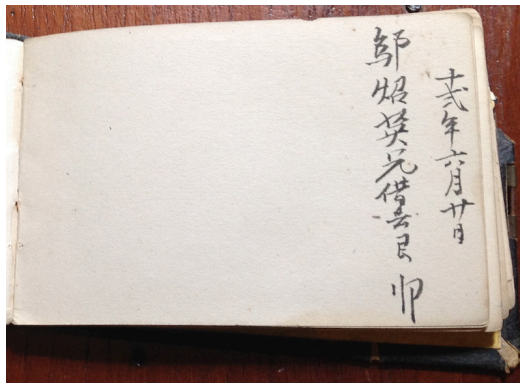 十弍年六月廿日
鄔炤英兄借去艮